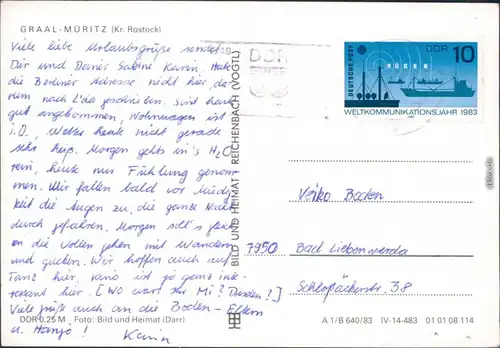 GRAAL-MÜRITZ (Kr. Rostock)
Viele liebe Urlaubsgrüße sendet
Dir und Deiner Sabine Karin. Habe
die Berliner Adresse nicht hier, da-
rum nach L'da geschrieben. Sind heute
gut angekommen, Wohnwagen ist
i.O., Wetter heute nicht gerade
sehr heiß. Morgen gehts in's H₂O
rein, heute nur Fühlung genom-
men. Wir fallen bald vor Müdig-
keit die Augen zu, die ganze Nacht
durch gefahren. Morgen soll's
an die Wellen gehen mit Wandern
und gucken. Wir hoffen auch auf
Tanz hier, Kino ist ja ganz inte-
ressant hier [Wo wart Ihr Mi? Dresden?]
Viele Grüße auch an die Boden-Eltern
u. Hansjo! Karin
DDR 0,25 M Foto: Bild und Heimat (Darr)
BILD UND HEIMAT REICHENBACH (VOGTL)
DDR
DEUTSCHE POST
DDR 10
RÜGEN
WELTKOMMUNIKATIONSJAHR 1983
Veiko Boden
7950 Bad Liebenwerda
Schloßäckerstr. 38
A 1/B 640/83 IV-14-483 01 01 08 114